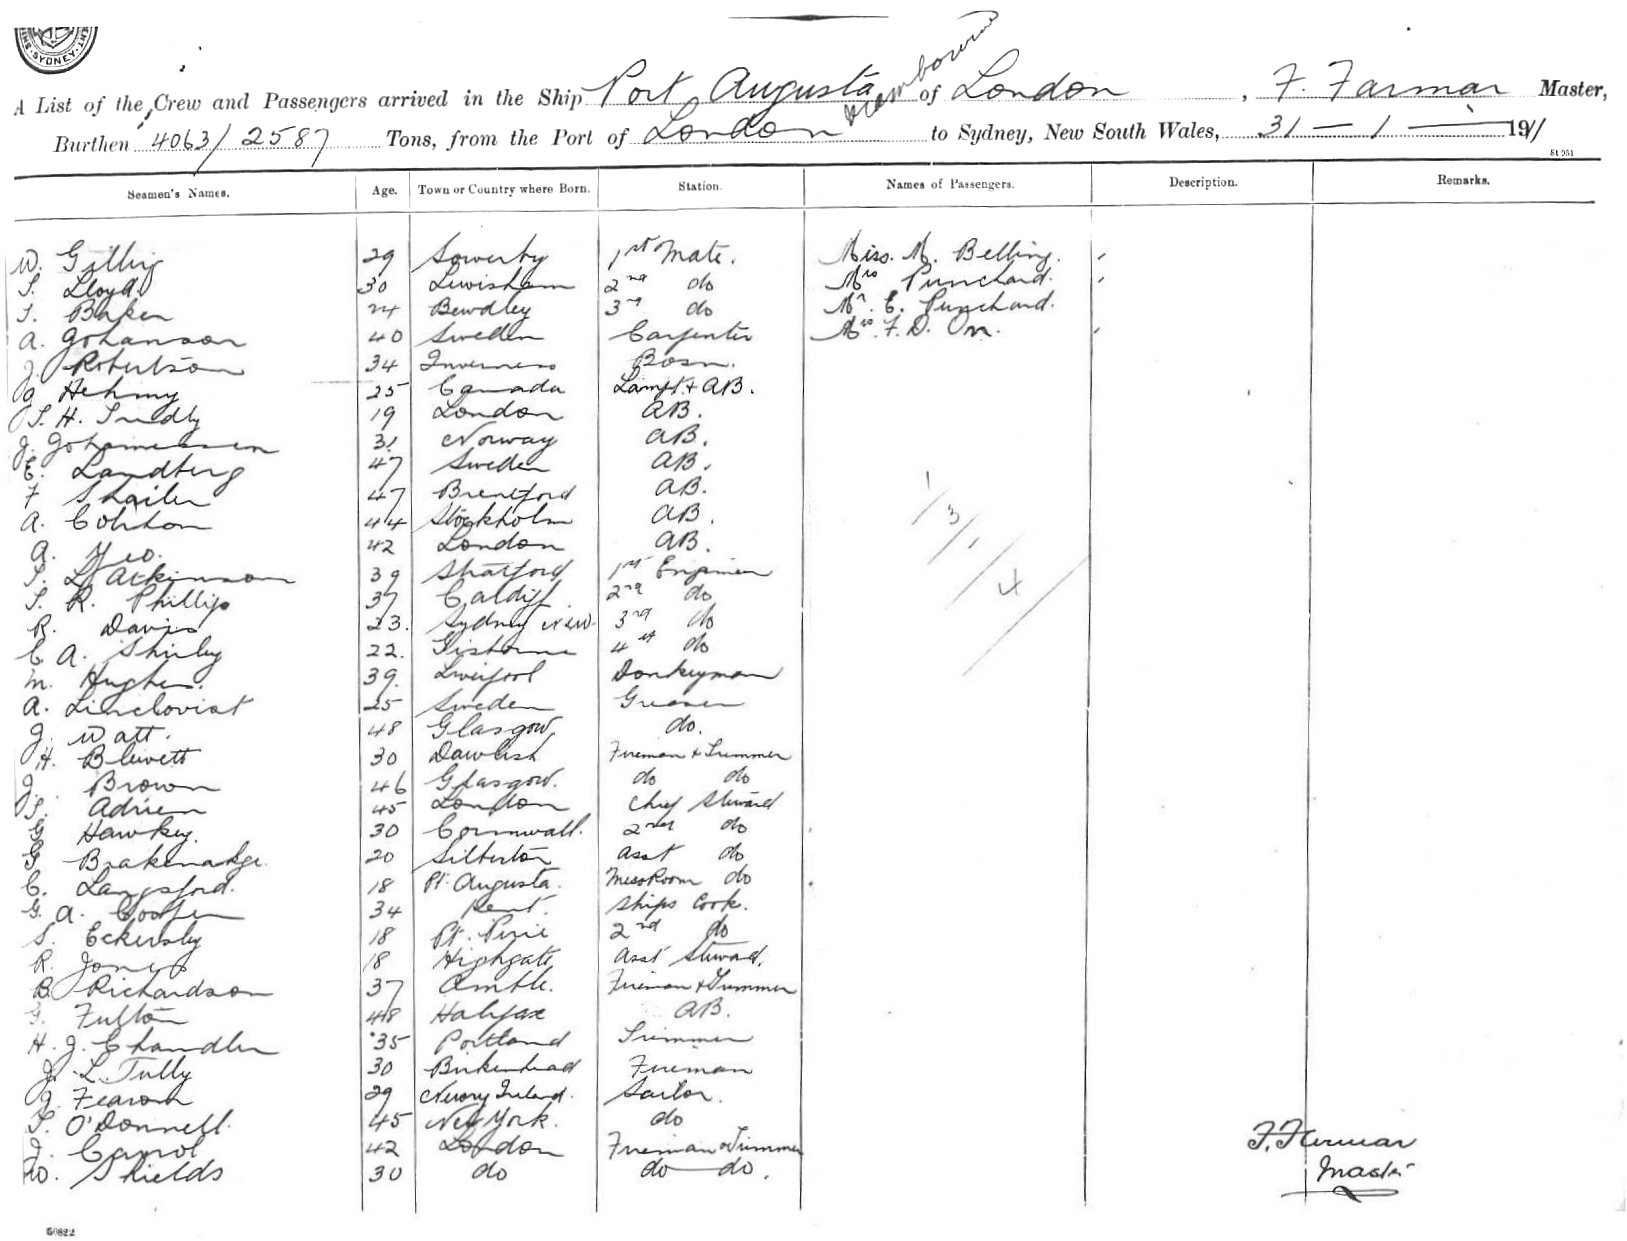 SYDNEY
A List of the Crew and Passengers arrived in the Ship Port Augusta of London, F. Farmar Master,
Burthen 4063/2587 Tons, from the Port of London to Sydney, New South Wales, 31 — 1 — 1911
81 951
Seamen's Names. Age. Town or Country where Born. Station. Names of Passengers. Description. Remarks.
W. 29 Sowerby 1st Mate. Miss. M. Belling.
T. Lloyd 30 Lewisham 2nd do Mrs Punchard.
T. Baker 24 Bewdley 3rd do Mr. E. Punchard.
A. Johanson 40 Sweden Carpenter F. D. Orr.
J. Robertson 34 Inverness Bosn.
25 Canada Lampt. + AB.
T. H. 19 London AB.
J. Johannessen 31 Norway AB.
E. Landberg 47 Sweden AB.
F Shailer 47 Brentford AB.
A. 44 Stockholm AB.
A. Yeo. 42 London AB.
T. L. Atkinson 39 Stratford 1st Engineer
T. R. Phillips 37 Cardiff 2nd do
R. Davis 23. Sydney NSW 3rd do
C A. Shirley 22. Gisborne 4th do
M. Hughes. 39. Liverpool Donkeyman
A. Lindqvist 25 Sweden Greaser
J. Watt. 48 Glasgow do.
H. Blewett 30 Dawlish Fireman & Trimmer
J. Brown 46 Glasgow. do do
T. Adrien 45 London Chief Steward
G Hawkey. 30 Cornwall. 2nd do
G 20 Silverton Asst do
C. Langsford. 18 Pt. Augusta. Mess Room do
G. A. Cooper 34 Kent. Ships Cook.
S. Eckersley 18 Pt. Pirie 2nd do
R. Jones 18 Highgate Asst Steward.
B. Richardson 37 Amble. Fireman & Trimmer
G. Fulton 48 Halifax AB.
H. J. Chandler 35 Portland Trimmer
J. L. Tully 30 Birkenhead Fireman
J. Fearon 29 Newry Ireland. Sailor.
T. O'Donnell. 45 New York. do
J. Carrol 42 London Fireman & Trimmer
W. Shields 30 do do do.
1/3/1/4
F. Farmar
Master
50822